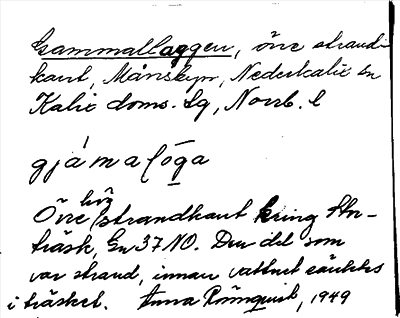 Gammallaggen, övre strand-
kant, Månsbyn, Nederkalix sn
Kalix doms. lg, Norrb. l
gjámalṓga
Övre hög strandkant kring Stor-
träsk, Gn 37 NO. Den del som
var strand, innan vattnet sänktes
i träsket. Anna Rönnquist, 1949